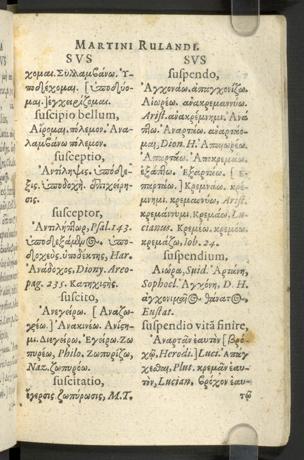 MARTINI RULANDI.
SVS
χομαι. Συλλαμβάνω. Ὑ-
ποδέχομαι. [ὑποδύο-
μαι.] ἐγχειρίζομαι.
suscipio bellum,
Αἴρομαι πόλεμον. Ἀνα-
λαμβάνω πόλεμον.
susceptio,
Ἀντίληψις. ὑπόδε-
ξις. ὑποδοχή. ἐπιχείρη-
σις.
susceptor,
Ἀντιλήπτωρ, Psal. 143.
ὑποδεξάμενος. ὑπο-
δοχεύς. ὑποδέκτης, Har.
Ἀνάδοχος, Diony. Areo-
pag. 235. Κατηχιστής.
suscito,
Ἀνεγείρω. [Ἀναζω-
γρέω.] Ἀνακινέω. Ἀνίση-
μι. Διεγείρω. Ἐγείρω. Ζω
πυρέω, Philo. Ζωπυρίζω,
Naz. ζωπυρέω.
suscitatio,
ἔγερσις ζωπύρωσις, M.T.
SVS
suspendo,
Ἀγχονάω. ἀπαγχονίζω.
Αἰωρέω. ἀνακρεμαννύω.
Arist. ἀνακρέμνημι. Ἀνα
πτω. Ἀναρτάω. ἀναρτάο-
μαι, Dion. H. Ἀπαιωρέω.
Ἀπαρτάω. Ἀποκρεμάω.
ἐξάπτω. Ἐξαρτάω. [Ἐ-
παρτάω.] Κρεμνάω. κρέ-
μνημι. κρεμαννύω, Arist.
κρεμάννυμι. Κρεμάω, Lu-
cianus. Κρεμέω. κρεμόω.
κρεμάζω, Iob. 24.
suspendium,
Αἰώρα, Suid. Ἀρτάνη,
Sophocl. Ἀγχόνη, D. H.
ἀγχονιμαῖος θάνατος,
Eustat.
suspendio vitã finire,
Ἀναρτᾶν ἑαυτὸν [βρό-
χῳ, Herodi.] Luci. Ἀπαγ
χεῶαι, Plut. κρεμᾶν ἑαυ-
τὸν, Lucian. βρόχον ἑαυ-
τῷ